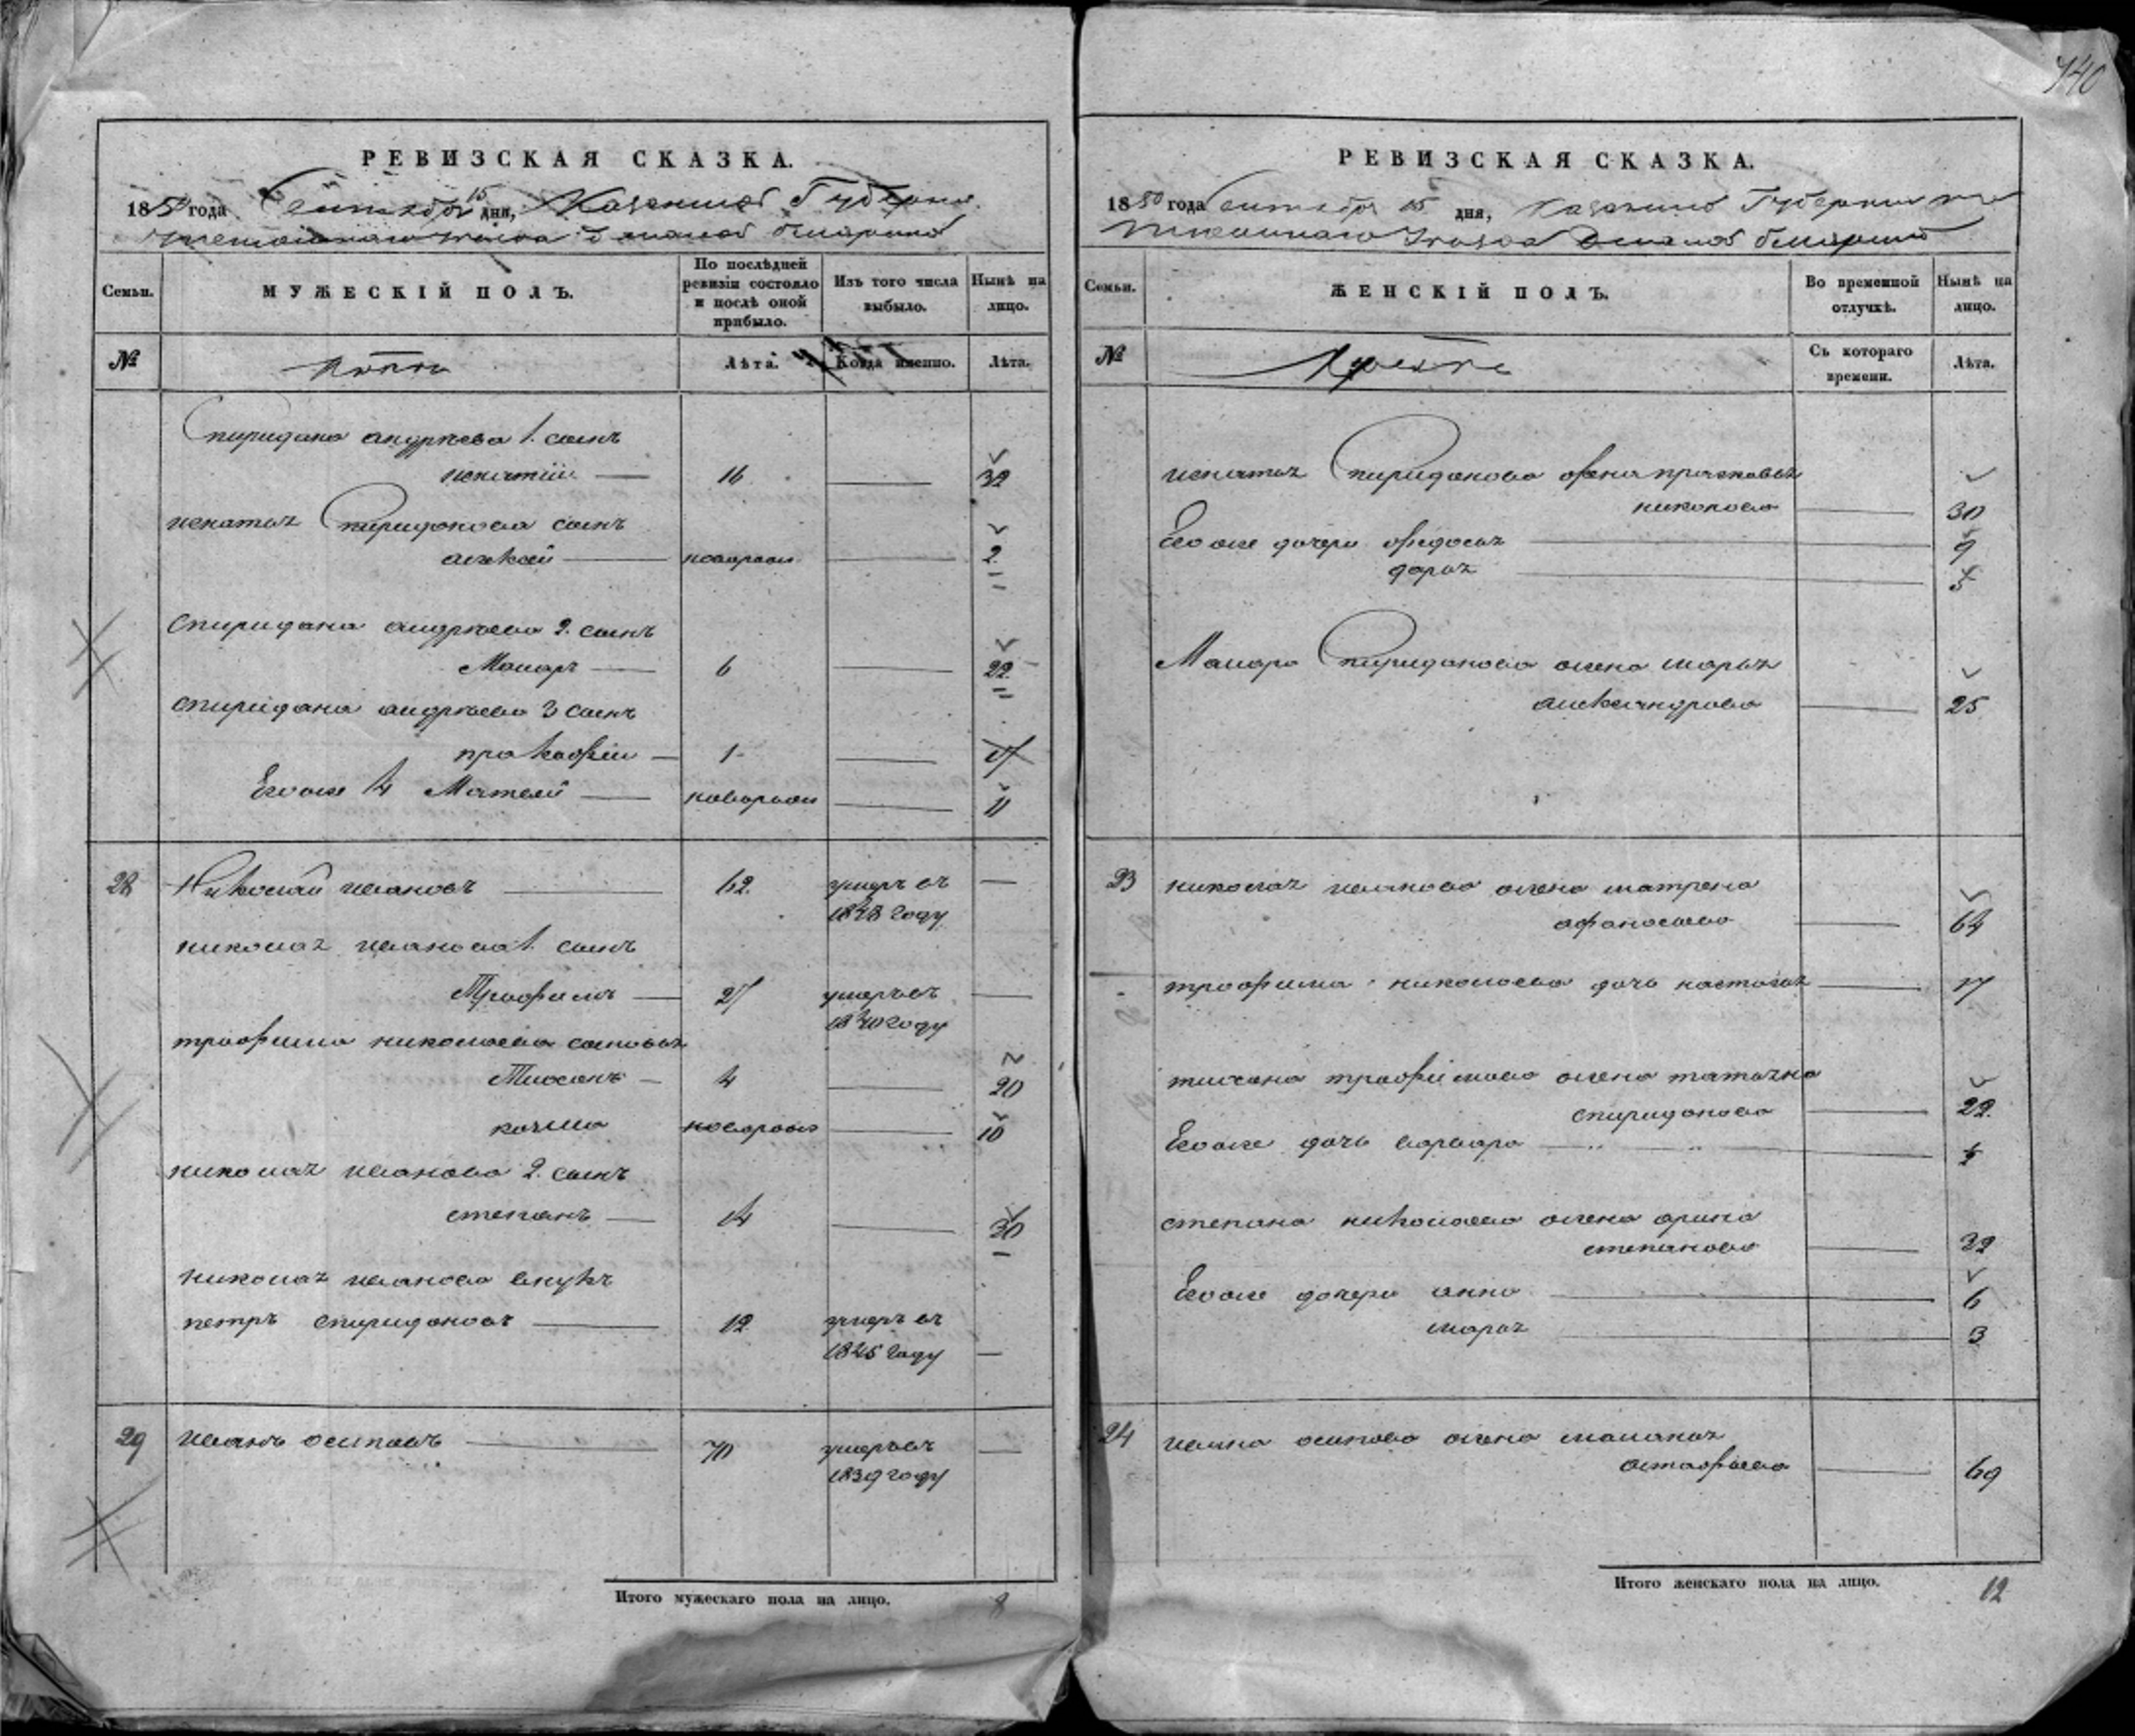 140
РЕВИЗСКАЯ СКАЗКА.
1850 года Сентября 15 дня, Казанской Губернии
уезда
Семьи.
МУЖЕСКІЙ ПОЛЪ.
По послѣдней ревизіи состояло и послѣ оной прибыло.
Изъ того числа выбыло.
Нынѣ на лицо.
№
Лѣта.
Когда именно.
Лѣта.
Спиридона андрѣева 1. сынъ
игнатiй 16 32
игнатья Спиридонова сынъ
алексей новорож 2
Спиридона андрѣева 2. сынъ
Макаръ 6 22
спиридона андрѣева 3 сынъ
прокофiй 1 17
Его же 4 Матвей новорож 11
28 Николай ивановъ 62 умеръ въ
1848 году
николая иванова 1. сынъ
Трофимъ 27 умеръ въ
1840 году
трофима николаева сыновья
Тихонъ 4 20
козма новорож 10
николая иванова 2. сынъ
степанъ 14 30
николая иванова внукъ
петръ спиридоновъ 12 умеръ въ
1845 году
29 иванъ осиповъ 70 умеръ въ
1839 году
Итого мужескаго пола на лицо. 8
РЕВИЗСКАЯ СКАЗКА.
1850 года Сентября 15 дня, Казанской Губернии
уезда
Семьи.
ЖЕНСКІЙ ПОЛЪ.
Во временной отлучкѣ.
Нынѣ на лицо.
№
Съ котораго времени.
Лѣта.
игнатья Спиридонова жена прасковья
никонова 30
Его же дочери федосья 9
дарья 5
Макара Спиридонова жена марья
александрова 25
23 николая иванова жена матрена
афонасьева 64
трофима николаева дочь настасья 17
тихона трофимова жена татьяна
спиридонова 22
Его же дочь варвара
степана николаева жена арина
степанова 32
Его же дочери анна 6
марья 3
24 ивана осипова жена маланья
астафьева 69
Итого женскаго пола на лицо. 12